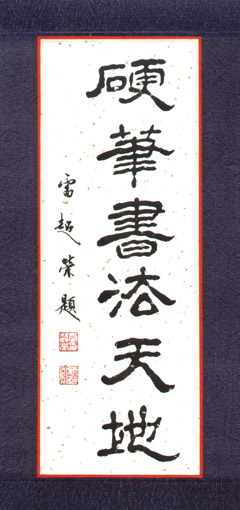 硬筆書法天地
雷超榮題